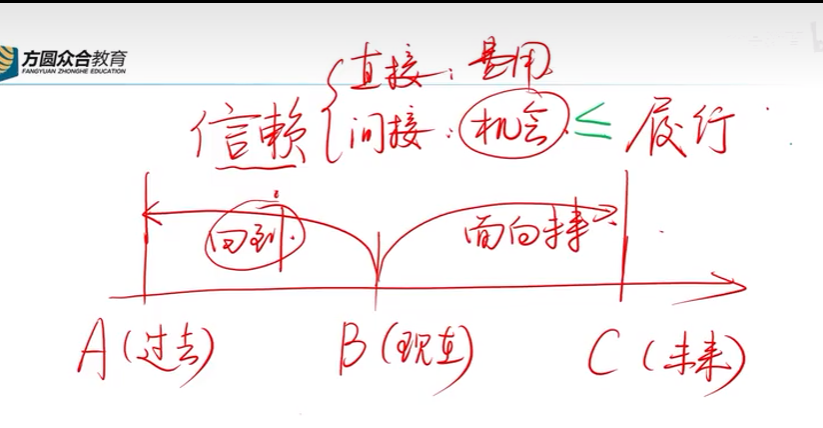 方圆众合教育
FANGYUAN ZHONGHE EDUCATION
直接：费用
信赖 间接：机会 ≤ 履行
回到 面向未来
A(过去) B(现在) C(未来)